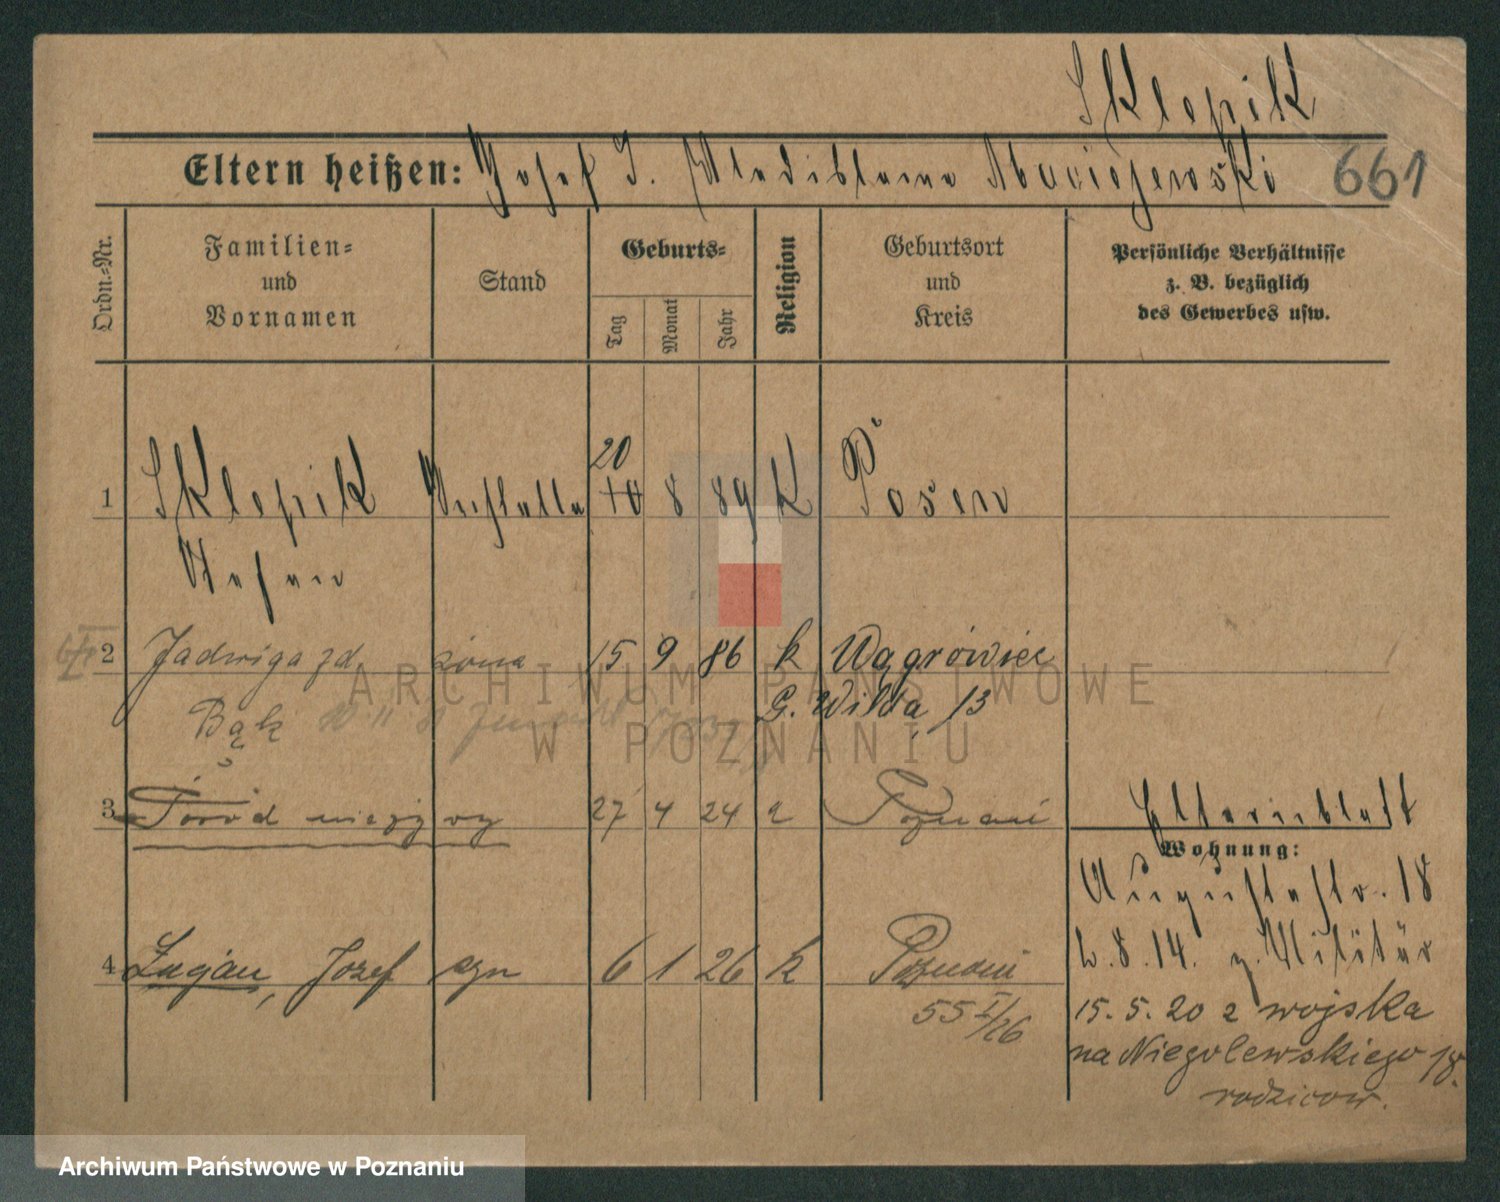 Sklepik
Eltern heißen: Josef J. Wladislawa Maciejewski 661
Ordn.-Nr.
Familien-
und
Vornamen
Stand
Geburts-
Tag
Monat
Jahr
Religion
Geburtsort
und
Kreis
Persönliche Verhältnisse
z. B. bezüglich
des Gewerbes usw.
20
1 Sklepik 10 8 89 K Posen
2 Jadwiga zd żona 15 9 86 k Wągrówiec
Bąk G. Wilda 13
3 Poród nieżywy 27 4 24 Poznań
Elternblatt
Wohnung:
Augustastr. 18
4 Łucjan, Józef syn 6 1 26 k Poznań
2.8.14. z. Militär
55 I/26
15.5.20 z wojska
na Niegolewskiego 18.
rodziców.
ARCHIWUM PAŃSTWOWE
W POZNANIU
Archiwum Państwowe w Poznaniu